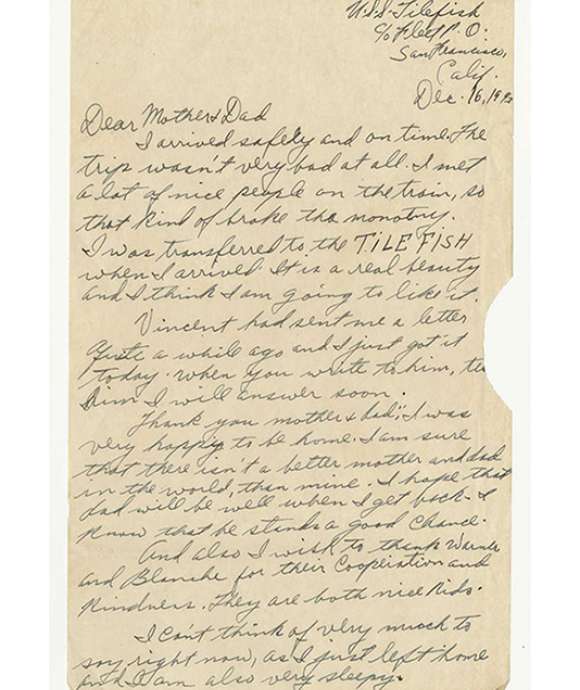 U.S.S. Tilefish
c/o Fleet P.O.
San Francisco,
Calif.
Dec. 16, 19
Dear Mother & Dad
I arrived safely and on time. The
trip wasn't very bad at all. I met
a lot of nice people on the train, so
that kind of broke the monotny.
I was transferred to the TILE FISH
when I arrived. It is a real beauty
and I think I am going to like it.
Vincent had sent me a letter
quite a while ago and I just got it
today. When you write to him, te
him I will answer soon.
Thank you mother & dad, I was
very happy to be home. I am sure
that there isn't a better mother and dad
in the world, than mine. I hope that
dad will be well when I get back. I
know that he stands a good chance.
And also I wish to thank
and Blanche for their Cooperation and
Kindness. They are both nice kids.
I can't think of very much to
say right now, as I just left home
and I am also very sleepy.